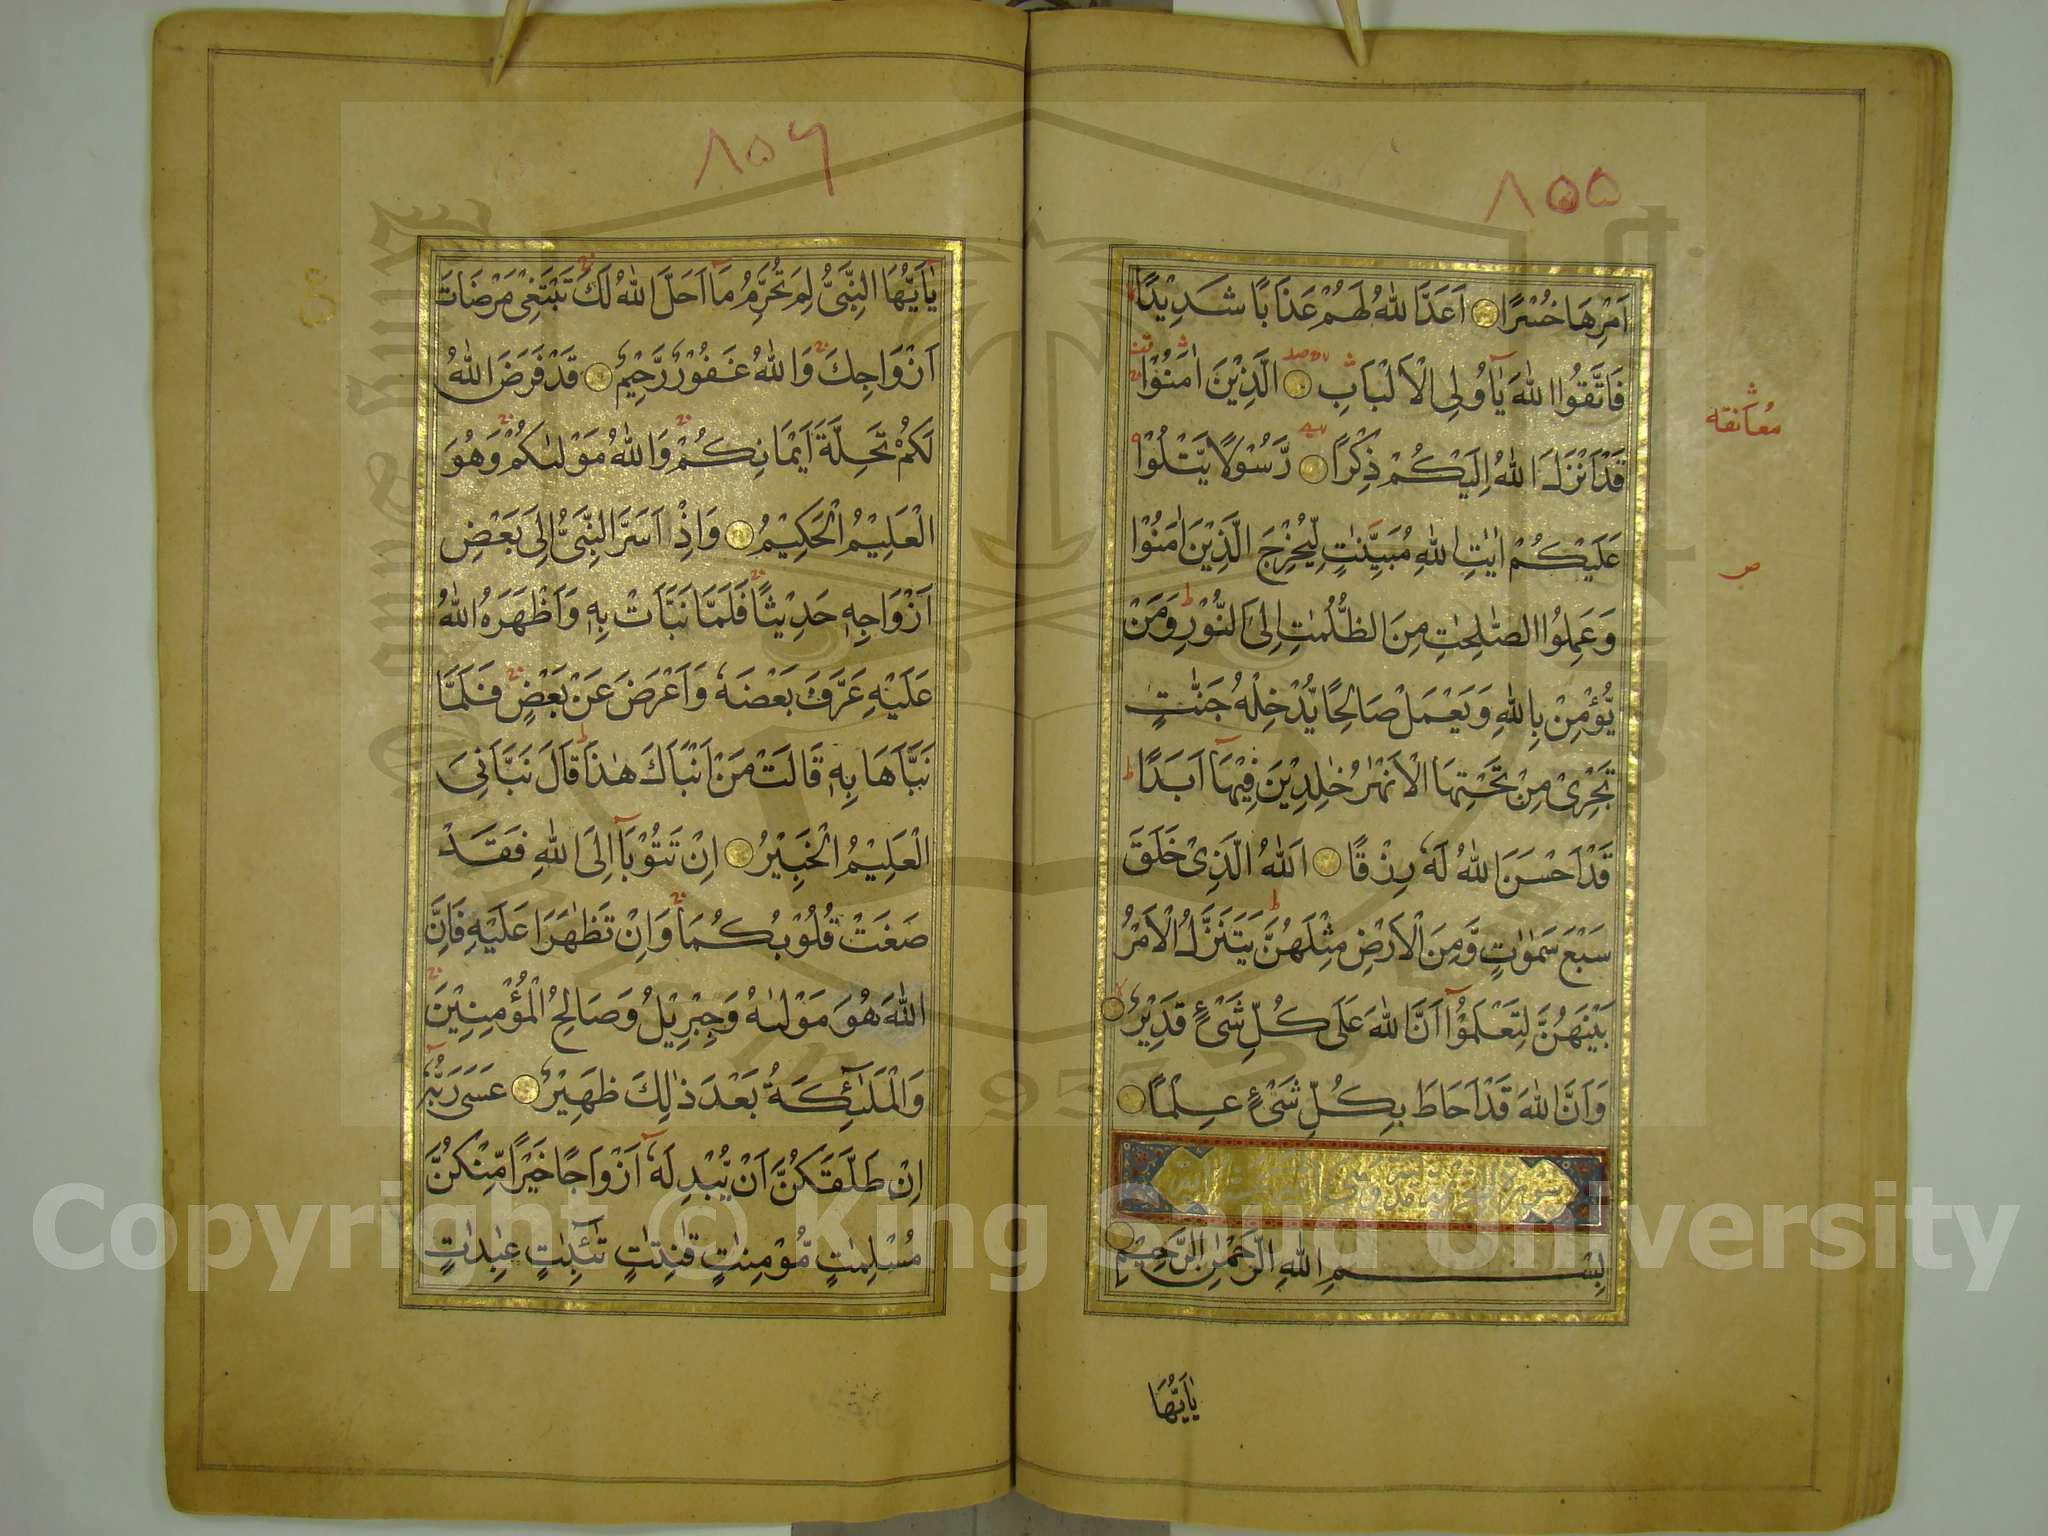 ٨٥٥
اَمْرِهَا خُسْرًا اَعَدَّ اللهُ لَهُمْ عَذَابًا شَدِيْدًا
فَاتَّقُوا اللهَ يٰٓاُولِى الْاَلْبَابِ الَّذِيْنَ اٰمَنُوْا
معانقه
قَدْ اَنْزَلَ اللهُ اِلَيْكُمْ ذِكْرًا رَّسُوْلًا يَّتْلُوْا
عَلَيْكُمْ اٰيٰتِ اللهِ مُبَيِّنٰتٍ لِّيُخْرِجَ الَّذِيْنَ اٰمَنُوْا
ص
وَعَمِلُوا الصّٰلِحٰتِ مِنَ الظُّلُمٰتِ اِلَى النُّوْرِ وَمَنْ
يُّؤْمِنْ بِاللهِ وَيَعْمَلْ صَالِحًا يُّدْخِلْهُ جَنّٰتٍ
تَجْرِىْ مِنْ تَحْتِهَا الْاَنْهٰرُ خٰلِدِيْنَ فِيْهَآ اَبَدًا
قَدْ اَحْسَنَ اللهُ لَهٗ رِزْقًا اَللهُ الَّذِىْ خَلَقَ
سَبْعَ سَمٰوٰتٍ وَّمِنَ الْاَرْضِ مِثْلَهُنَّ يَتَنَزَّلُ الْاَمْرُ
بَيْنَهُنَّ لِتَعْلَمُوْٓا اَنَّ اللهَ عَلٰى كُلِّ شَىْءٍ قَدِيْرٌ
وَاَنَّ اللهَ قَدْ اَحَاطَ بِكُلِّ شَىْءٍ عِلْمًا
بِسْمِ اللهِ الرَّحْمٰنِ الرَّحِيْمِ
يٰٓاَيُّهَا
٨٥٦
يٰٓاَيُّهَا النَّبِىُّ لِمَ تُحَرِّمُ مَآ اَحَلَّ اللهُ لَكَ تَبْتَغِىْ مَرْضَاتَ
اَزْوَاجِكَ وَاللهُ غَفُوْرٌ رَّحِيْمٌ قَدْ فَرَضَ اللهُ
لَكُمْ تَحِلَّةَ اَيْمَانِكُمْ وَاللهُ مَوْلٰىكُمْ وَهُوَ
الْعَلِيْمُ الْحَكِيْمُ وَاِذْ اَسَرَّ النَّبِىُّ اِلٰى بَعْضِ
اَزْوَاجِهٖ حَدِيْثًا فَلَمَّا نَبَّاَتْ بِهٖ وَاَظْهَرَهُ اللهُ
عَلَيْهِ عَرَّفَ بَعْضَهٗ وَاَعْرَضَ عَنْ بَعْضٍ فَلَمَّا
نَبَّاَهَا بِهٖ قَالَتْ مَنْ اَنْبَاَكَ هٰذَا قَالَ نَبَّاَنِىَ
الْعَلِيْمُ الْخَبِيْرُ اِنْ تَتُوْبَآ اِلَى اللهِ فَقَدْ
صَغَتْ قُلُوْبُكُمَا وَاِنْ تَظٰهَرَا عَلَيْهِ فَاِنَّ
اللهَ هُوَ مَوْلٰىهُ وَجِبْرِيْلُ وَصَالِحُ الْمُؤْمِنِيْنَ
وَالْمَلٰٓئِكَةُ بَعْدَ ذٰلِكَ ظَهِيْرٌ عَسٰى رَبُّهٗٓ
اِنْ طَلَّقَكُنَّ اَنْ يُّبْدِلَهٗٓ اَزْوَاجًا خَيْرًا مِّنْكُنَّ
مُسْلِمٰتٍ مُّؤْمِنٰتٍ قٰنِتٰتٍ تٰٓئِبٰتٍ عٰبِدٰتٍ
Copyright © King Saud University
1957